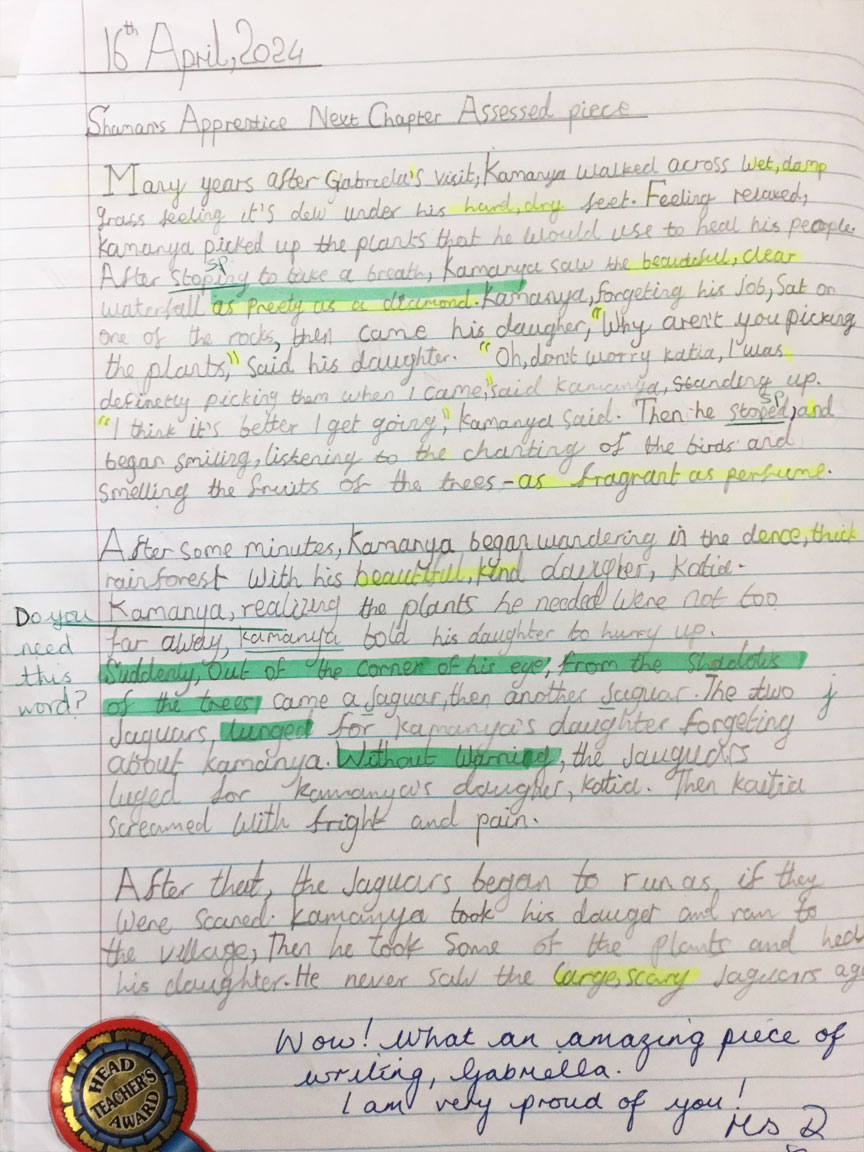 16th April, 2024
Shaman's Apprentice Next Chapter Assessed piece
Many years after Gabriela's visit, Kamanya walked across wet, damp
grass feeling it's dew under his hard, dry feet. Feeling relaxed,
Kamanya picked up the plants that he would use to heal his people.
sp
After stoping to take a breath, Kamanya saw the beautiful, clear
waterfall as preety as a diamond. Kamanya, forgeting his job, Sat on
one of the rocks, then came his daugher, "Why aren't you picking
the plants," said his daughter. "Oh, don't worry katia, I was
definetly picking them when I came," said kamanya, standing up.
sp
"I think it's better I get going," kamanya said. Then he stoped, and
began smiling, listening to the chanting of the birds and
smelling the fruits of the trees - as fragrant as perfume.
After some minutes, Kamanya began wandering in the dence, thick
rainforest with his beautiful, kind daugher, katia.
Do you Kamanya, realizing the plants he needed were not too
need far away, kamanya told his daughter to hurry up.
this Suddenly, out of the corner of his eye, from the shadows
word? of the trees came a Jaguar, then another Jaguar. The two j
Jaguars, lunged for kamanya's daughter forgeting
about kamanya. Without warning, the Jauguars
luged for kamanya's daugher, katia. Then kaitia
screamed with fright and pain.
After that, the Jaguars began to run as, if they
were scared. kamanya took his dauget and ran to
the village, Then he took some of the plants and
his daughter. He never saw the large, scary Jaguars
HEAD
TEACHER'S
AWARD
Wow! What an amazing piece of
writing, Gabriella.
I am very proud of you!